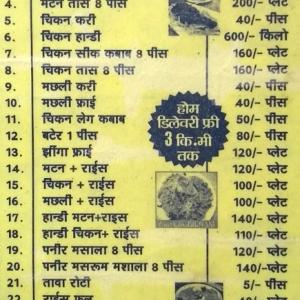 4. मटन तास 8 पीस 200/- प्लेट
5. चिकन करी 40/- पीस
6. चिकन हान्डी 600/- किलो
7. चिकन सीक कबाब 8 पीस 160/- प्लेट
8. चिकन तास 8 पीस 160/- प्लेट
9. मछली करी 40/- पीस
10. मछली फ्राई 40/- पीस
11. चिकन लेग कबाब 50/- पीस
12. बटेर 1 पीस 80/- पीस
13. झींगा फ्राई 120/- प्लेट
14. मटन + राईस 120/- प्लेट
15. चिकन + राईस 100/- प्लेट
16. मछली + राईस 100/- प्लेट
17. हान्डी मटन+राइस 140/- प्लेट
18. हान्डी चिकन+ राईस 110/- प्लेट
19. पनीर मसाला 8 पीस 120/- प्लेट
20. पनीर मसरुम मशाला 8 पीस 140/-प्लेट
21. तावा रोटी 5/- पीस
22.
होम
डिलेवरी फ्री
3 कि.मी
तक